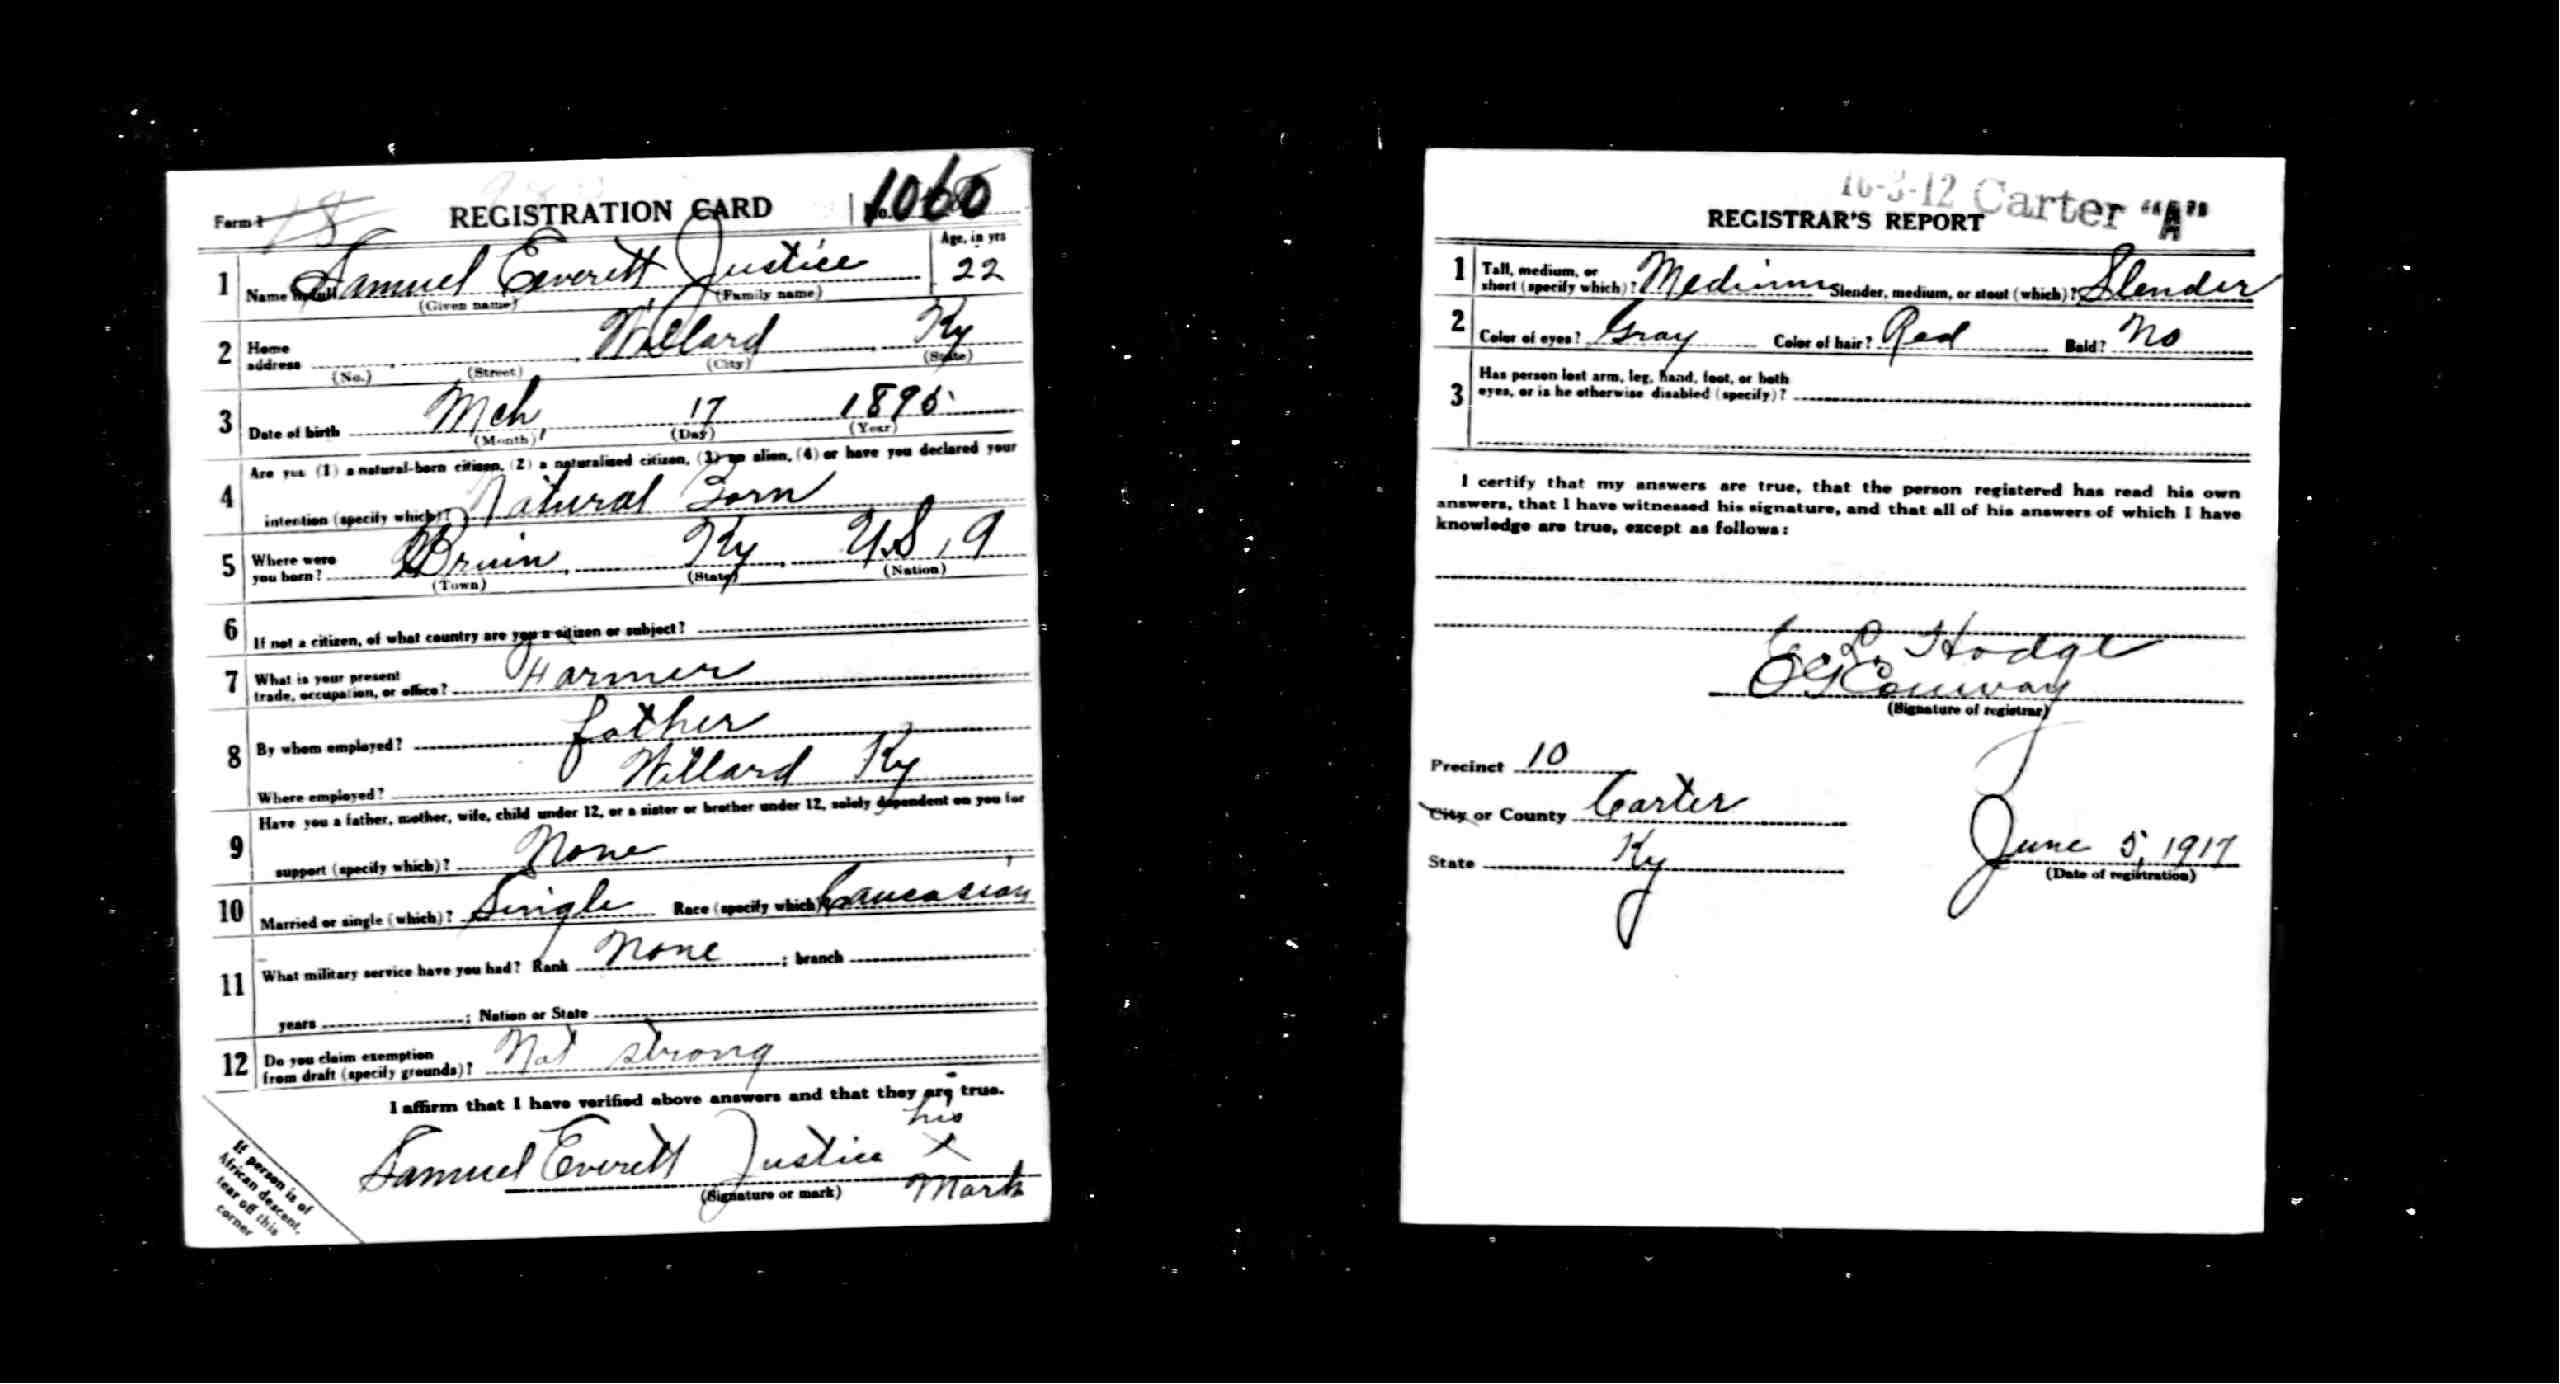 Form 1 18 REGISTRATION CARD No. 1060
1 Name in full Samuel Everett Justice Age, in yrs 22
(Given name) (Family name)
2 Home address Willard Ky
(No.) (Street) (City) (State)
3 Date of birth Mch, 17 1895
(Month) (Day) (Year)
4 Are you (1) a natural-born citizen, (2) a naturalized citizen, (3) an alien, (4) or have you declared your
intention (specify which)? Natural Born
5 Where were you born? Bruin, Ky, U.S, A
(Town) (State) (Nation)
6 If not a citizen, of what country are you a citizen or subject?
7 What is your present trade, occupation, or office? Farmer
8 By whom employed? father
Where employed? Willard Ky
9 Have you a father, mother, wife, child under 12, or a sister or brother under 12, solely dependent on you for
support (specify which)? None
10 Married or single (which)? Single Race (specify which)? Caucasian
11 What military service have you had? Rank None ; branch
years ; Nation or State
12 Do you claim exemption from draft (specify grounds)? Not strong
I affirm that I have verified above answers and that they are true.
his
Samuel Everett Justice X
(Signature or mark) Mark
If person is of
African descent,
tear off this
corner
16-3-12 Carter "A"
REGISTRAR'S REPORT
1 Tall, medium, or short (specify which)? Medium Slender, medium, or stout (which)? Slender
2 Color of eyes? Gray Color of hair? Red Bald? No
3 Has person lost arm, leg, hand, foot, or both
eyes, or is he otherwise disabled (specify)?
I certify that my answers are true, that the person registered has read his own
answers, that I have witnessed his signature, and that all of his answers of which I have
knowledge are true, except as follows:
Hodge
Conway
(Signature of registrar)
Precinct 10
City or County Carter
State Ky
June 5, 1917
(Date of registration)